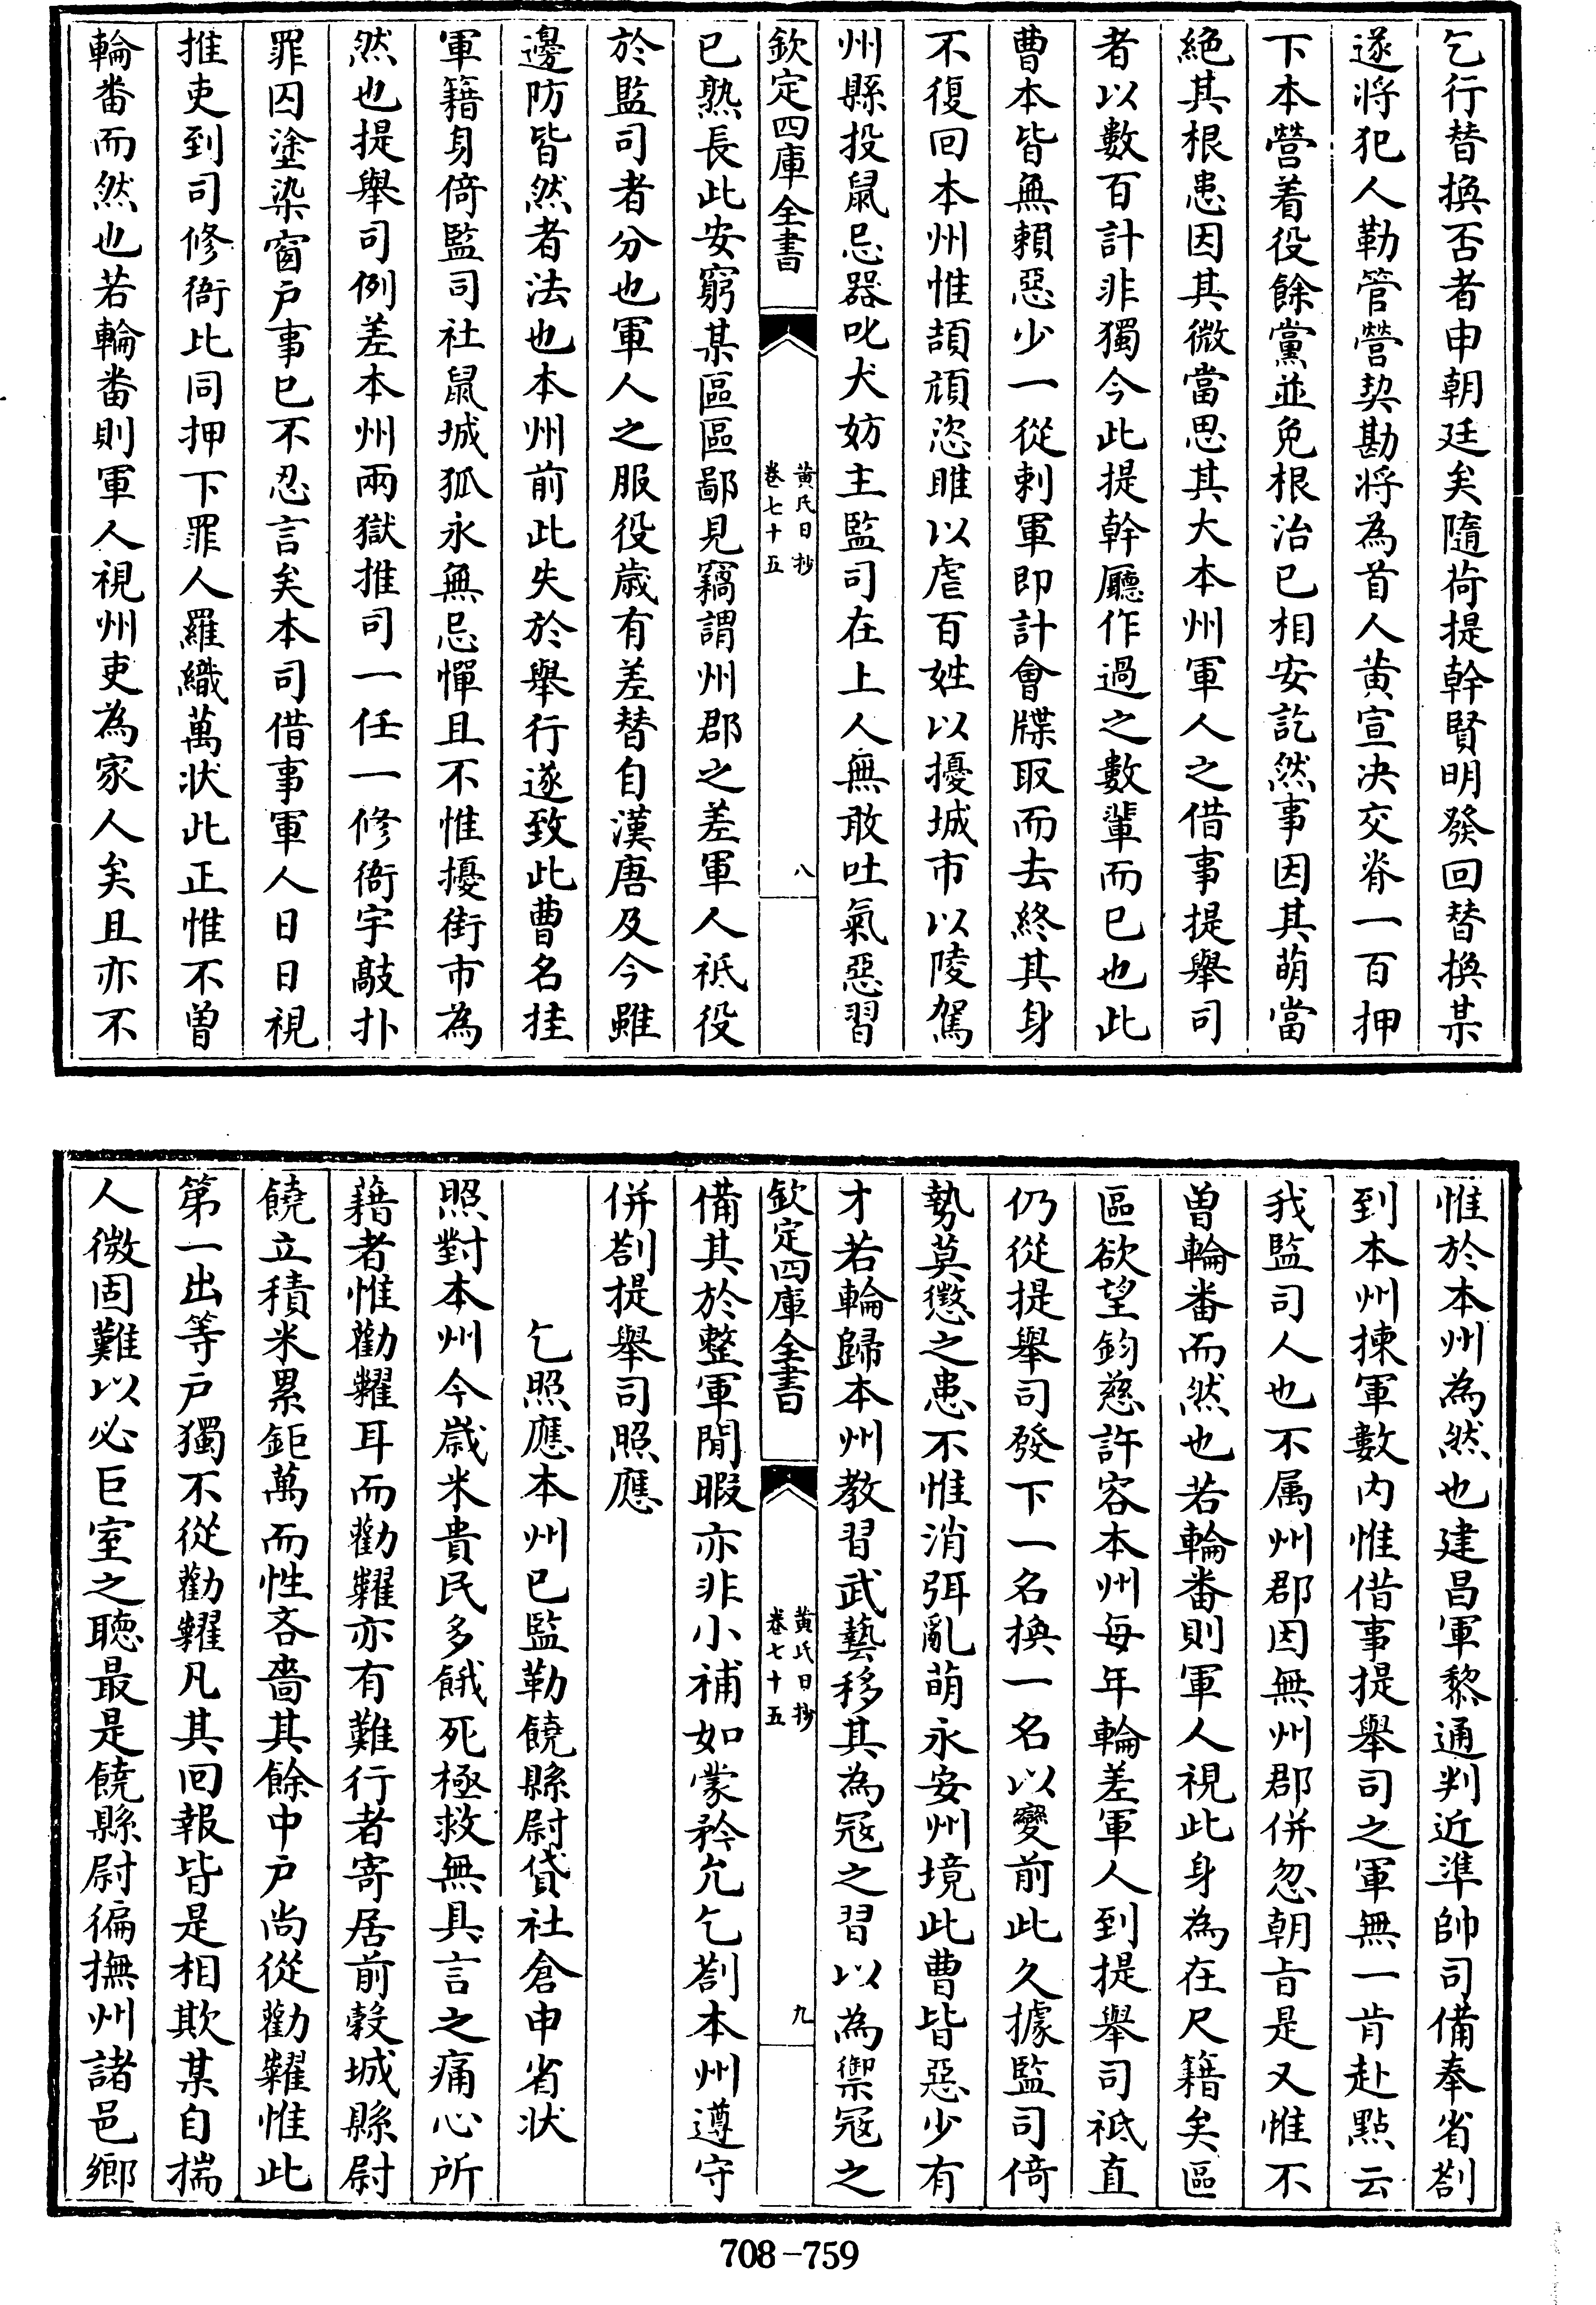 乞行替換否者申朝廷矣隨荷提幹賢明發回替換某
遂將犯人勒管營契勘將為首人黄宣决交脊一百押
下本營着役餘黨並免根治已相安訖然事因其萌當
絕其根患因其微當思其大本州軍人之借事提舉司
者以數百計非獨今此提幹廳作過之數輩而已也此
曹本皆無賴惡少一從刺軍即計會牒取而去終其身
不復回本州惟頡頑恣睢以虐百姓以擾城市以陵駕
州縣投鼠忌器叱犬妨主監司在上人無敢吐氣惡習
欽定四庫全書
黄氏日抄
卷七十五
八
已熟長此安窮某區區鄙見竊謂州郡之差軍人祗役
於監司者分也軍人之服役歲有差替自漢唐及今雖
邊防皆然者法也本州前此失於舉行遂致此曹名挂
軍籍身倚監司社鼠城狐永無忌憚且不惟擾街市為
然也提舉司例差本州兩獄推司一任一修衙宇敲扑
罪囚塗染窗户事已不忍言矣本司借事軍人日日視
推吏到司修衙比同押下罪人羅織萬狀此正惟不曽
輪番而然也若輪番則軍人視州吏為家人矣且亦不
惟於本州為然也建昌軍黎通判近準帥司備奉省劄
到本州揀軍數内惟借事提舉司之軍無一肯赴點云
我監司人也不属州郡因無州郡併忽朝㫖是又惟不
曽輪番而然也若輪番則軍人視此身為在尺籍矣區
區欲望鈞慈許容本州每年輪差軍人到提舉司祗直
仍從提舉司發下一名換一名以變前此久據監司倚
勢莫懲之患不惟消弭亂萌永安州境此曹皆惡少有
才若輪歸本州教習武藝移其為冦之習以為禦冦之
欽定四庫全書
黄氏日抄
卷七十五
九
備其於整軍閒暇亦非小補如蒙矜允乞劄本州遵守
併劄提舉司照應
乞照應本州已監勒饒縣尉貸社倉申省状
照對本州今歲米貴民多餓死極救無具言之痛心所
藉者惟勸糶耳而勸糶亦有難行者寄居前榖城縣尉
饒立積米累鉅萬而性吝嗇其餘中户尚從勸糶惟此
第一出等户獨不從勸糶凡其回報皆是相欺某自揣
人微固難以必巨室之聽最是饒縣尉徧撫州諸邑鄉
708-759